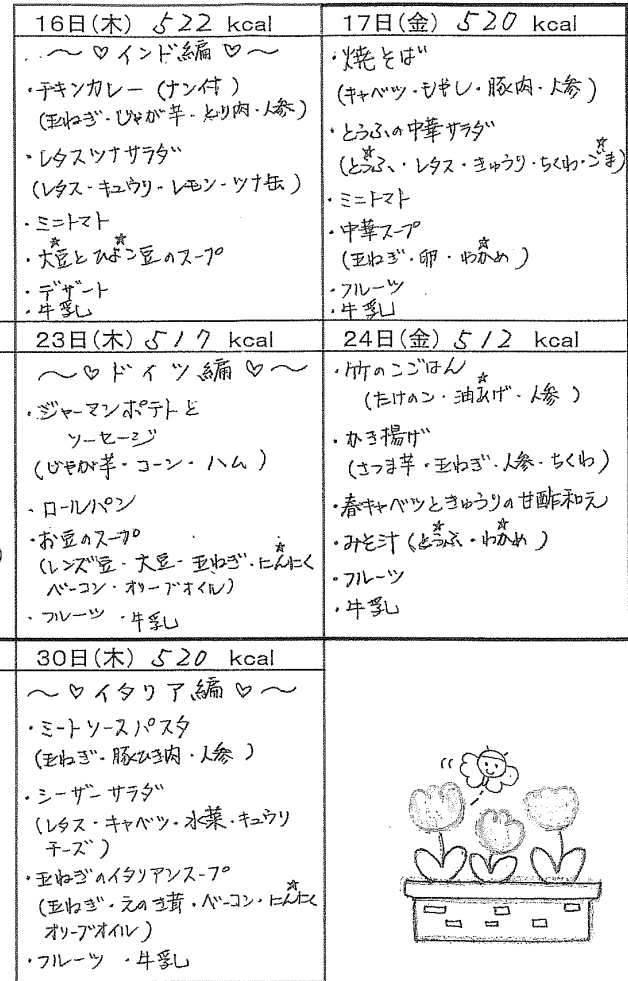 16日(木) 522 kcal
～♡インド編♡～
・チキンカレー(ナン付)
(玉ねぎ・じゃが芋・とり肉・人参)
・レタスツナサラダ
(レタス・キュウリ・レモン・ツナ缶)
・ミニトマト
☆ ☆
・大豆とひよこ豆のスープ
・デザート
・牛乳
17日(金) 520 kcal
・焼そば
(キャベツ・もやし・豚肉・人参)
・とうふの中華サラダ
☆ ☆
(とうふ・レタス・きゅうり・ちくわ・ごま)
・ミニトマト
・中華スープ
☆
(玉ねぎ・卵・わかめ)
・フルーツ
・牛乳
23日(木) 517 kcal
～♡ドイツ編♡～
・ジャーマンポテトと
ソーセージ
(じゃが芋・コーン・ハム)
・ロールパン
・お豆のスープ
☆
(レンズ豆・大豆・玉ねぎ・にんにく
ベーコン・オリーブオイル)
・フルーツ ・牛乳
24日(金) 512 kcal
・竹のこごはん
☆
(たけのこ・油あげ・人参)
・かき揚げ
(さつま芋・玉ねぎ・人参・ちくわ)
・春キャベツときゅうりの甘酢和え
☆ ☆
・みそ汁(とうふ・わかめ)
・フルーツ
・牛乳
30日(木) 520 kcal
～♡イタリア編♡～
・ミートソースパスタ
(玉ねぎ・豚ひき肉・人参)
・シーザーサラダ
(レタス・キャベツ・水菜・キュウリ
チーズ)
・玉ねぎのイタリアンスープ
☆
(玉ねぎ・えのき茸・ベーコン・にんにく
オリーブオイル)
・フルーツ ・牛乳